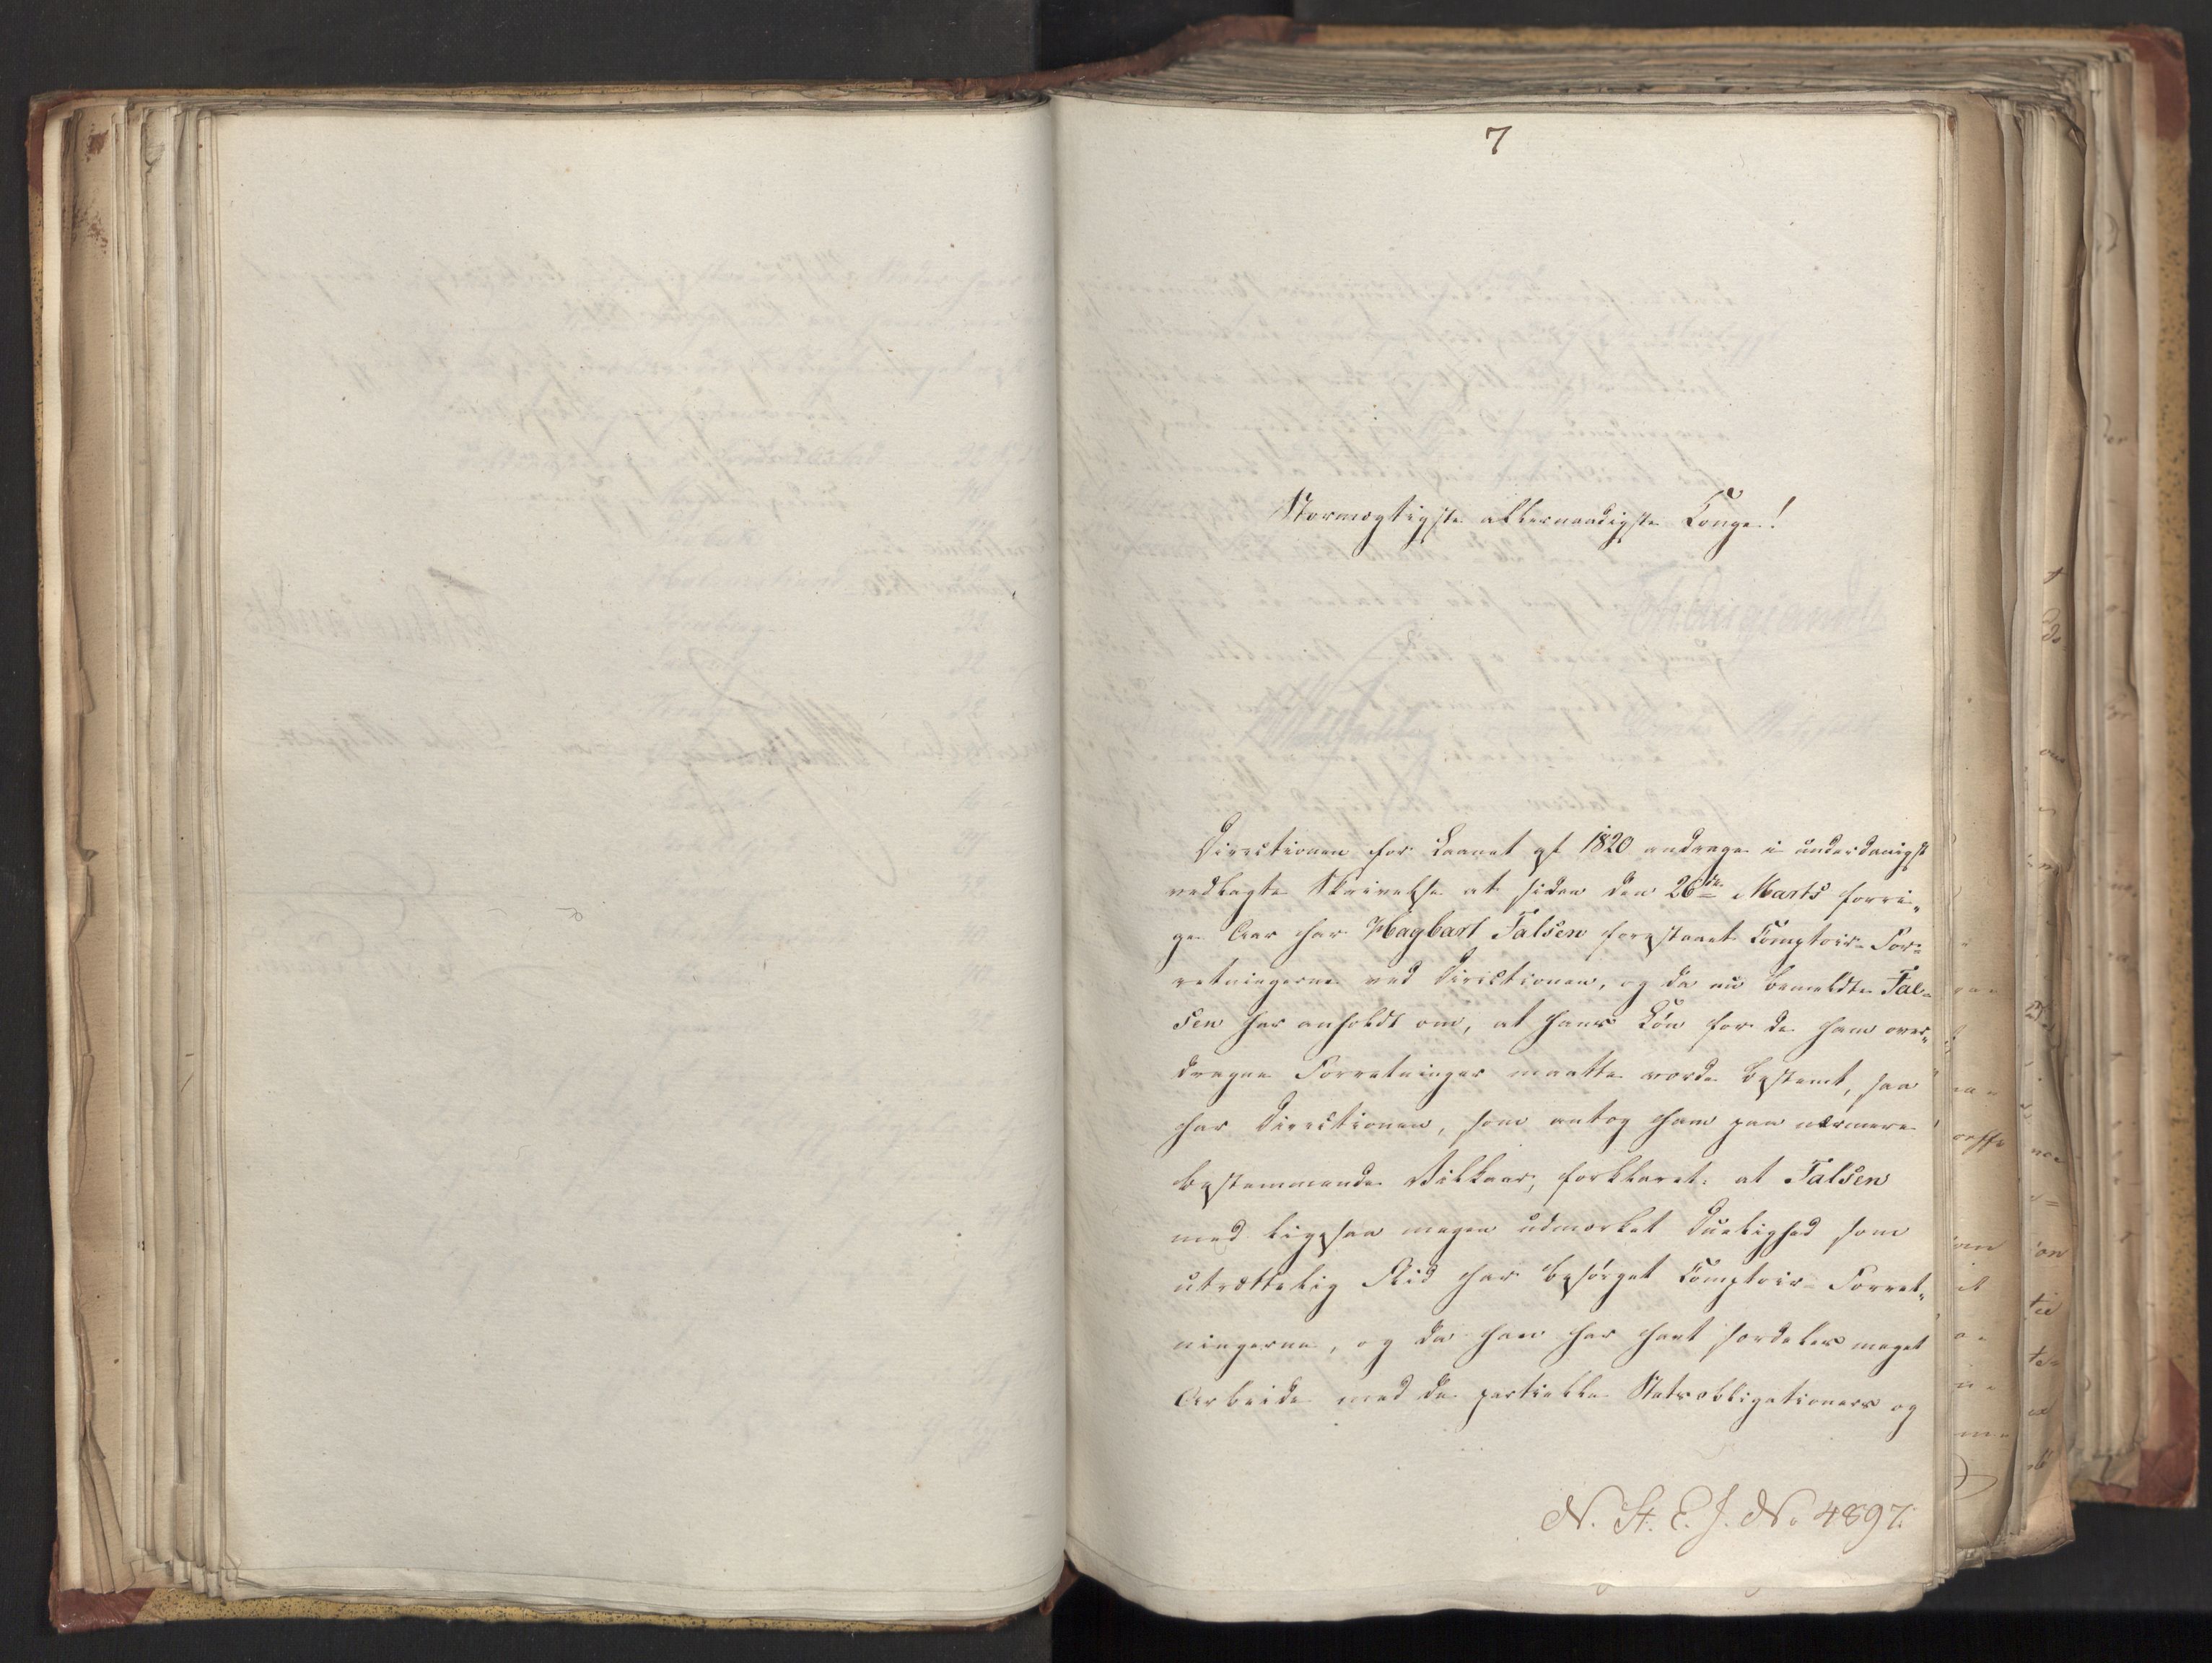 7
Stormægtigste allernaadigste Konge!
Directionen for Laanet af 1820 andrager i underdanigst
vedlagte Skrivelse at siden den 26de Marts forri-
ge Aar har Hagbart Falsen forestaaet Comptoir-For-
retningerne ved Directionen, og da nu bemeldte Fal-
sen har anholdt om, at hans Løn for de ham over-
dragne Forretninger maatte vorde bestemt, saa
har Directionen, som antog ham paa nærmere
bestemmende Vilkaar, forklaret: at Falsen
med ligesaa megen udmærket Duelighed som
utrættelig Flid har besørget Comptoir-Forret-
ningerne, og da han har havt særdeles meget
Arbeide med de partielle Statsobligationers og
N. St. E. J. No 4897.